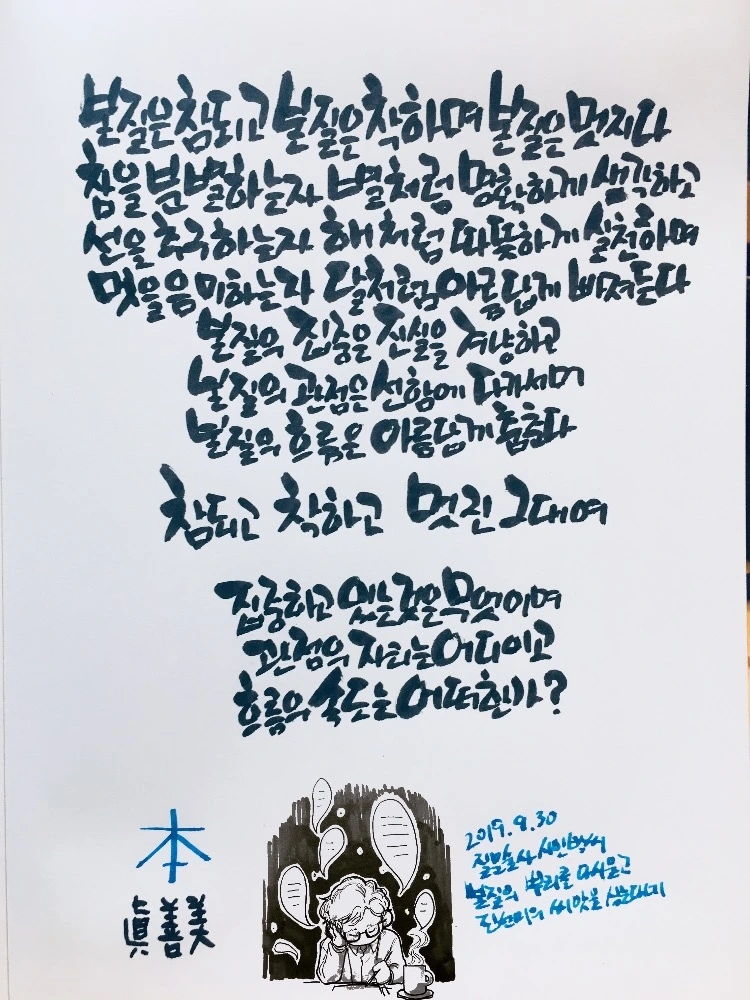 본질은 참되고 본질은 착하며 본질은 멋지다
참을 분별하는자 별처럼 명확하게 생각하고
선을 추구하는자 해처럼 따뜻하게 실천하며
멋을 음미하는자 달처럼 아름답게 빠져든다
본질의 집중은 진실을 겨냥하고
본질의 관점은 선함에 다가서며
본질의 흐름은 아름답게 춤춘다
참되고 착하고 멋진 그대여
집중하고 있는것은 무엇이며
관점의 자리는 어디이고
흐름의 속도는 어떠한가?
本
眞善美
2019.9.30
본질의 뿌리를
진선미의 씨앗을